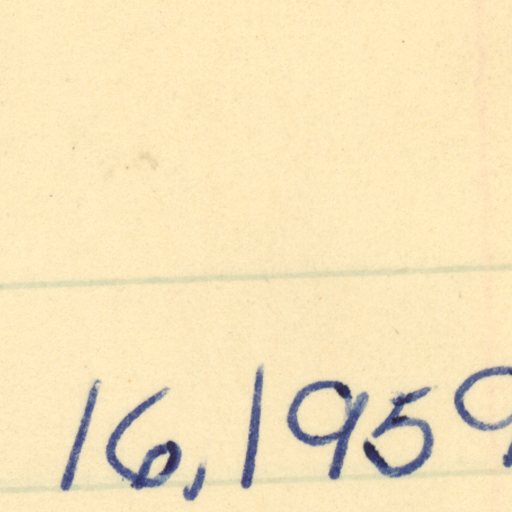 16, 1959